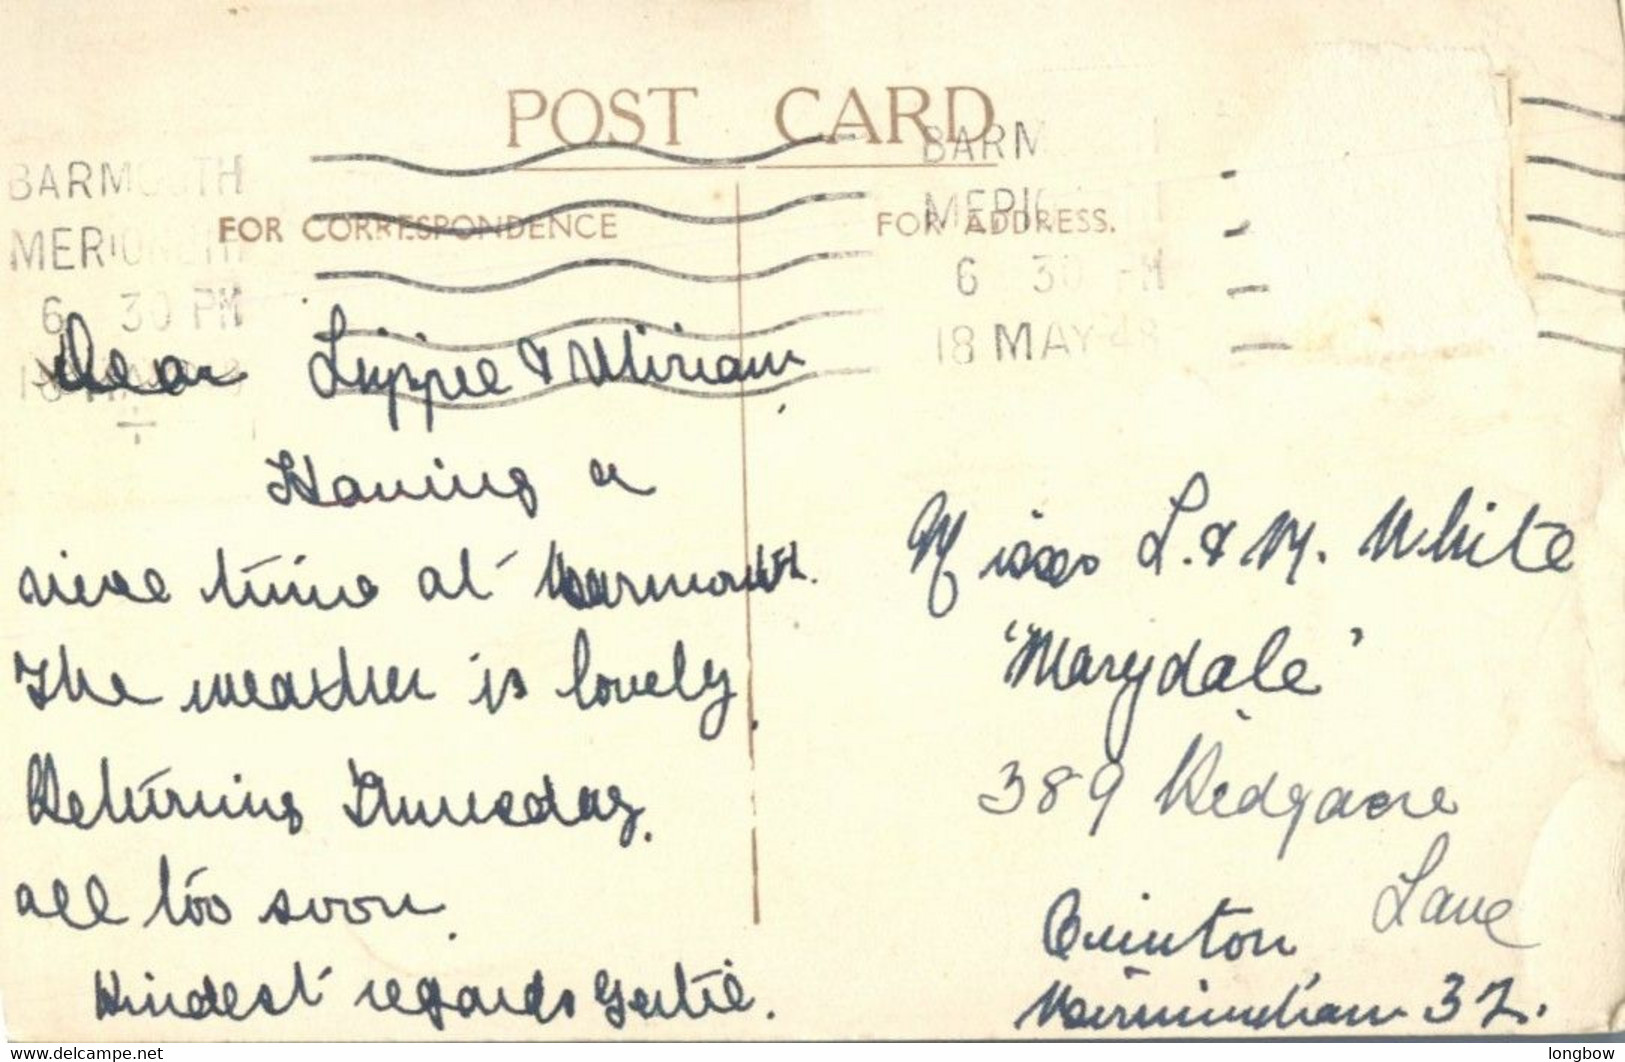 POST CARD
BARMOUTH
MERIONETH
6 30 PM
BARM
MERIO
6 30 PM
18 MAY 48
FOR CORRESPONDENCE
FOR ADDRESS.
Dear Lippee & Miriam,
Having a
nice time at Barmouth.
The weather is lovely.
Returning Thursday.
all too soon.
Kindest regards Gertie.
Misses L. & M. White
"Marydale"
389 Ridgacre
Lane
Quinton
Birmingham 32.
longbow